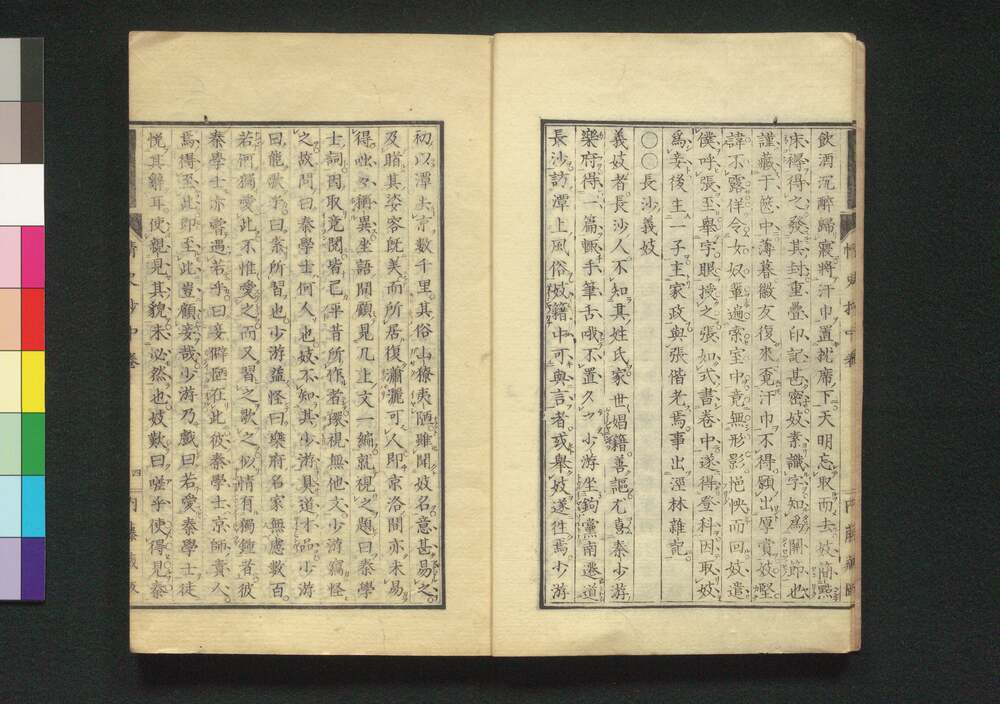 飲酒沉醉歸寢將汗巾置牀席下天明忘取而去妓簡熨
床褥得之發其封重疊印記甚密妓素識字知爲關節也
謹藏于篋中薄暮徽友復來覓汗巾不得願出厚賞妓堅
諱不露佯令女奴輩遍索室中竟無形影悒怏而回妓遣
僕呼張至舉字眼授之張如式書卷中遂得登科因取妓
爲妾後生一子主家政與張偕老焉事出涇林雜記
〇〇長沙義妓
義妓者長沙人不知其姓氏家世娼籍善謳尤喜秦少游
樂府得一篇輒手筆口哦不置久之少游坐鉤黨南遷道
長沙訪潭土風俗妓籍中可與言者或舉妓遂往焉少游
初以潭去京數千里其俗山獠夷陋雖聞妓名意甚易之
及睹其姿容既美而所居復瀟灑可人即京洛間亦未易
得咄々稱異坐語間顧見几上文一編就視之題曰秦學
士詞因取竟閱皆己平昔所作者環視無他文少游竊怪
之故問曰秦學士何人也妓不知其少游具道才品少游
曰能歌乎曰素所習也少游益怪曰樂府名家無慮數百
若何獨愛此不惟愛之而又習之歌之似情有獨鍾者彼
秦學士亦嘗遇若乎曰妾僻陋在此彼秦學士京師貴人
焉得至此即至此豈顧妾哉少游乃戲曰若愛秦學士徒
悅其辭耳使親見其貌未必然也妓歎曰嗟乎使得見秦
情史抄中卷
四